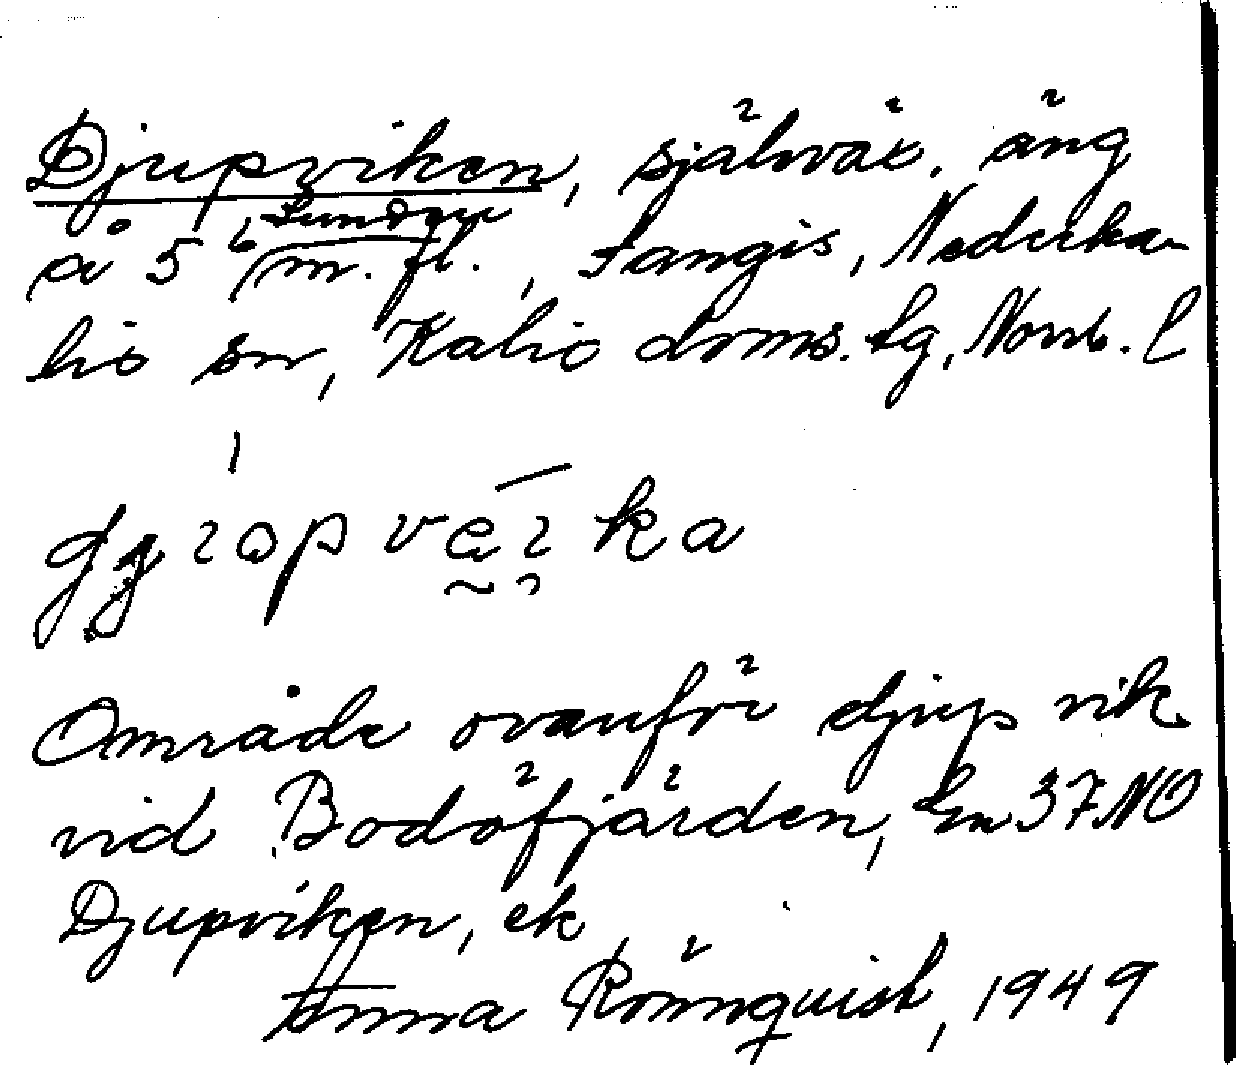 Djupviken, självväx. äng
på 5⁶ Sundqu m. fl., Langis, Nederka-
lix sn, Kalix doms. Lg, Norrb. l
Område ovanför djup vik
vid Bodöfjärden, En 37 NO
Djupviken, ek
Anna Rönnquist, 1949